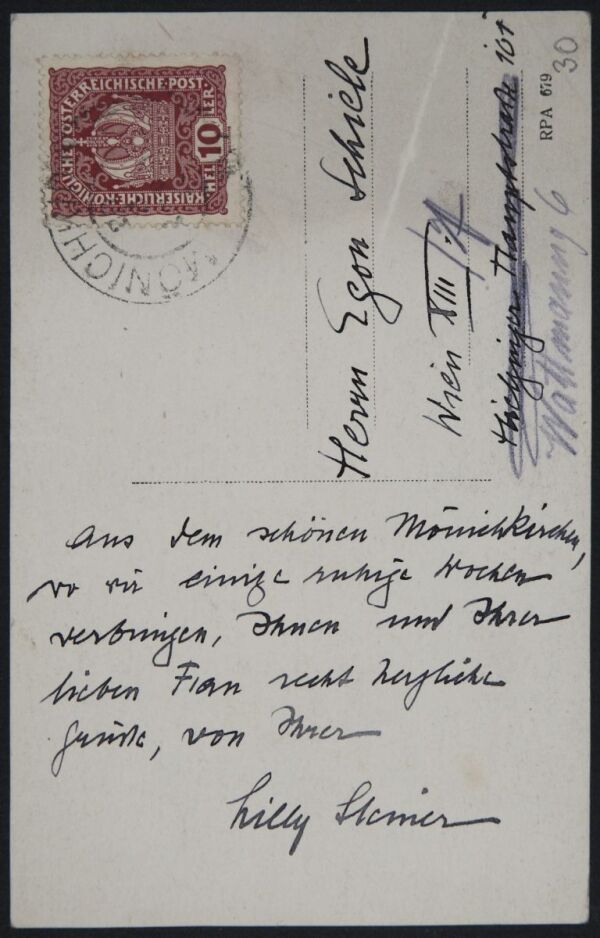 KAISERLICHE·KÖNIGLICHE·ÖSTERREICHISCHE·POST·
10 HELLER
MÖNICH
Herrn Egon Schiele
Wien XIII./
Hietzinger Hauptstraße 101
Wattmanng 6
RPA 679
30
Aus dem schönen Mönichkirchen,
wo wir einige ruhige Wochen
verbringen, Ihnen und Ihrer
lieben Frau recht herzliche
Grüße, von Ihrer
Lilly Steiner